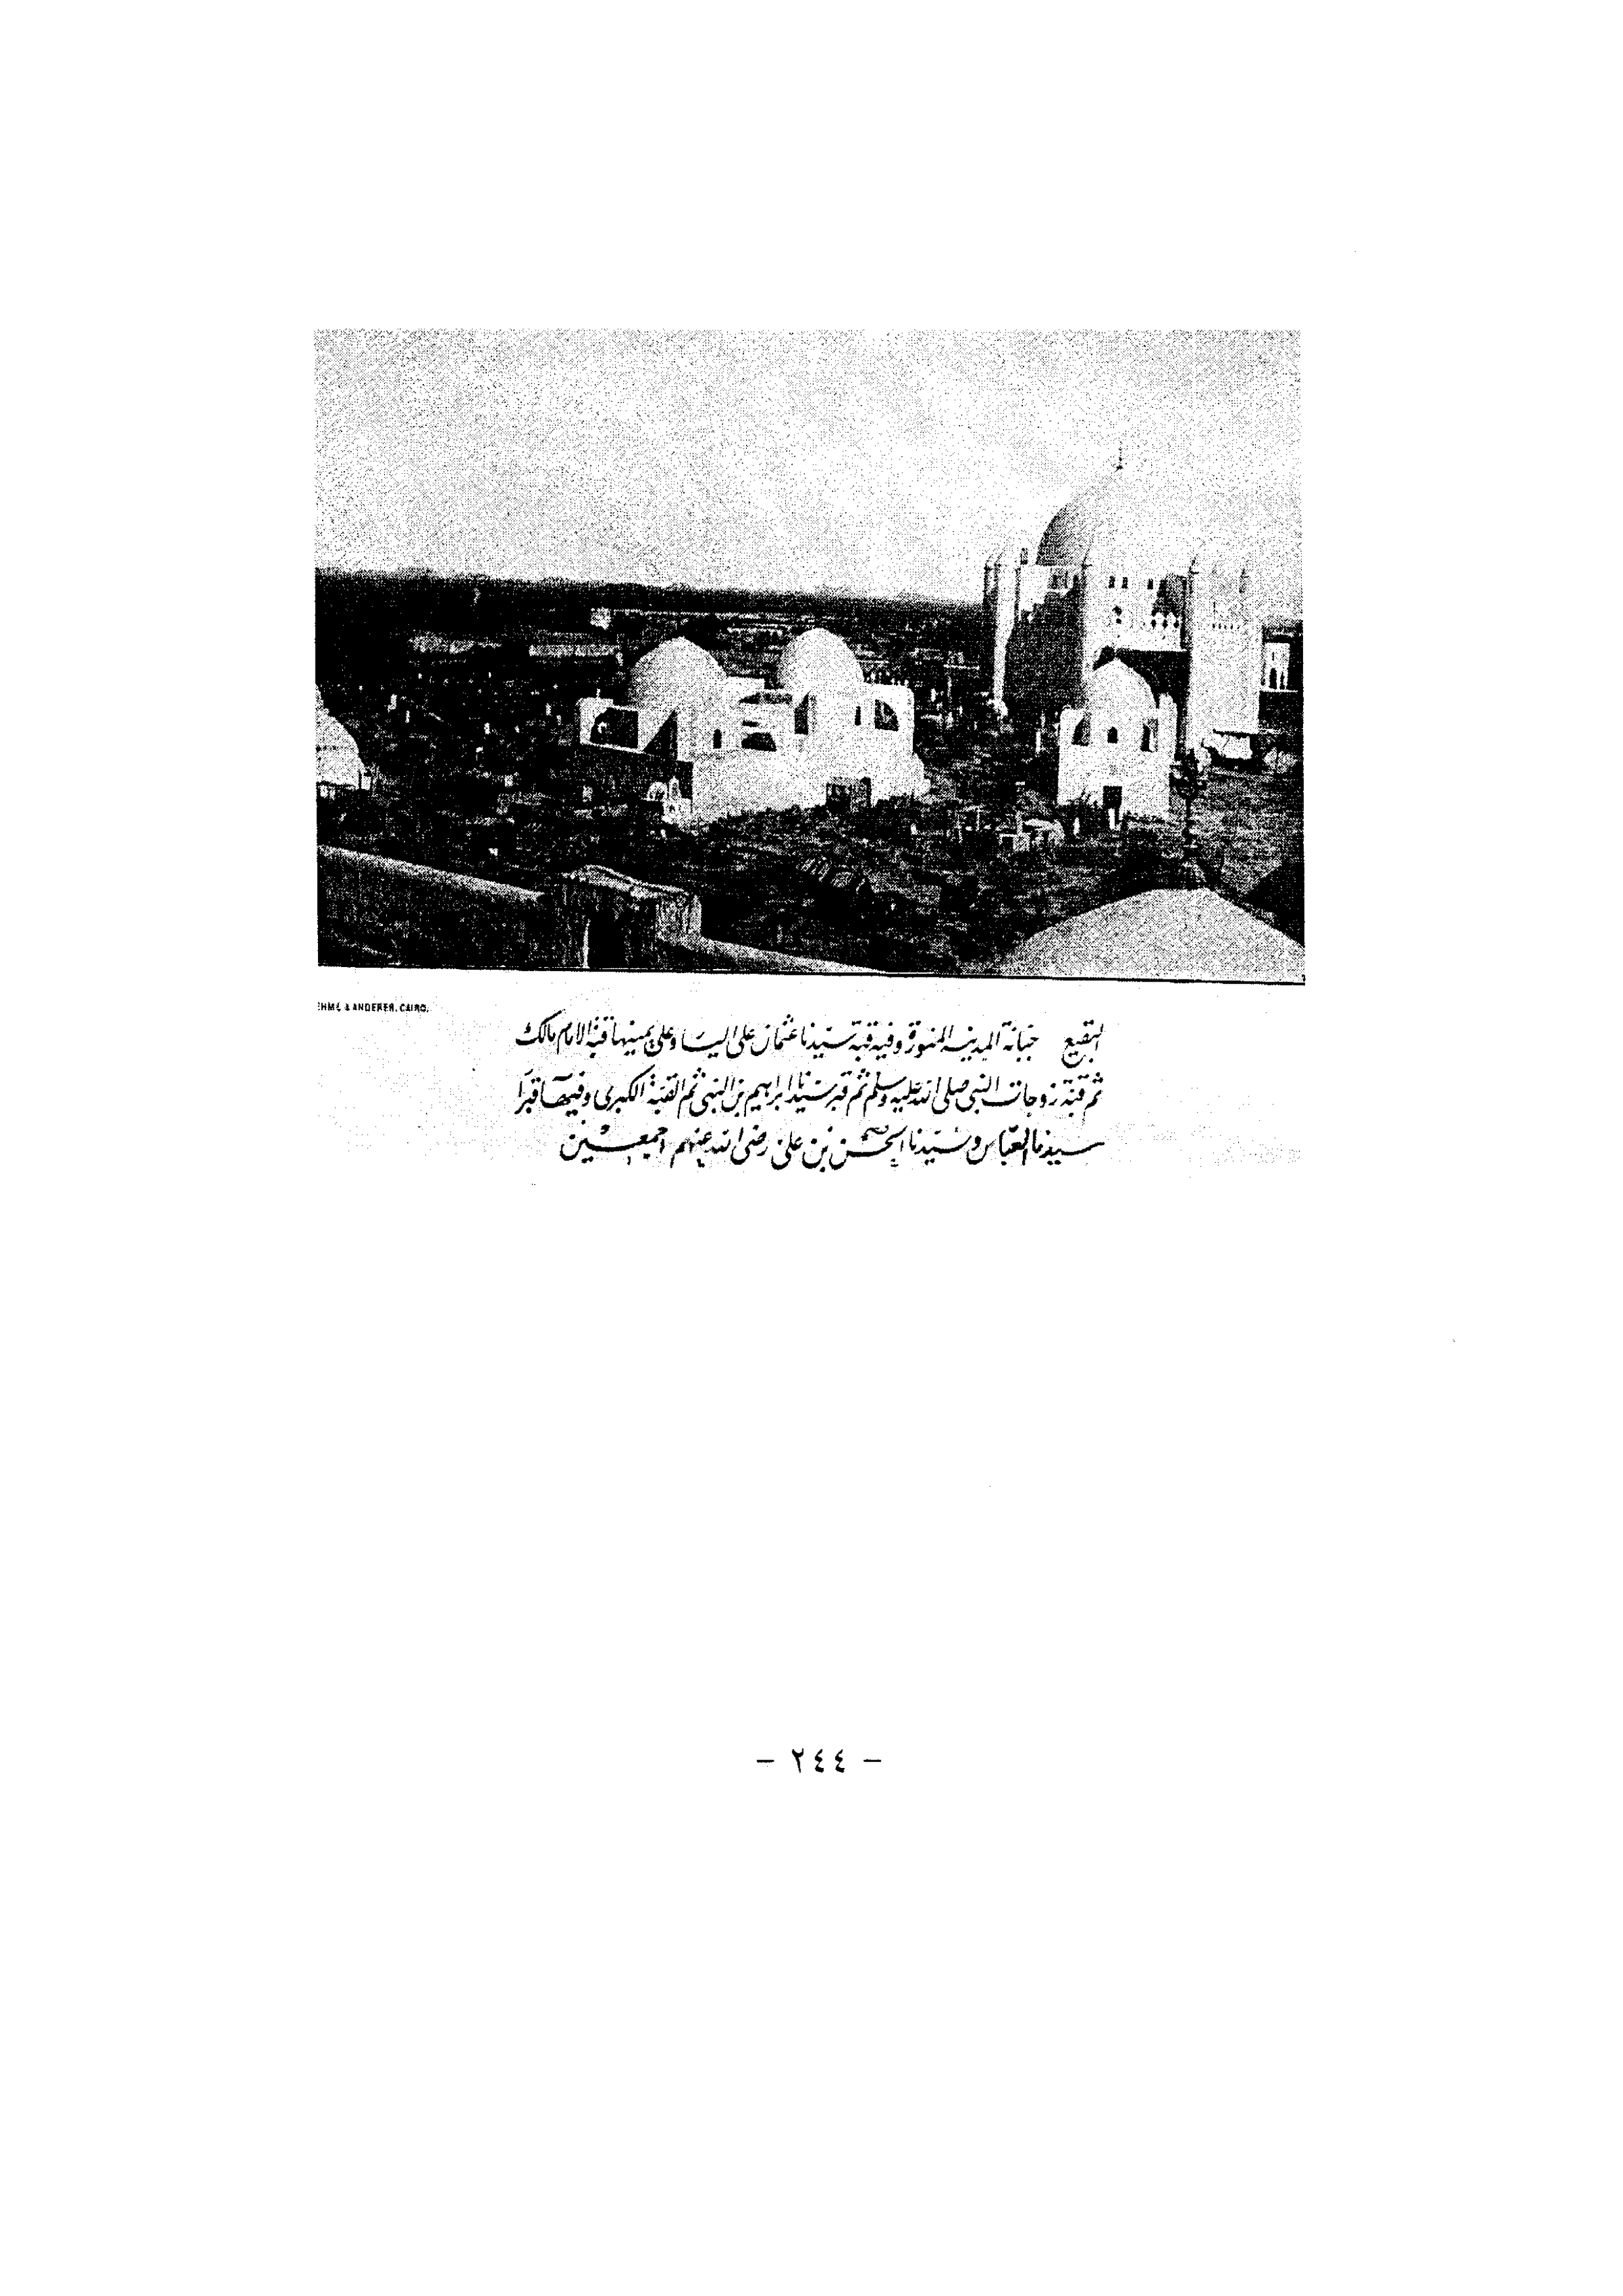 EHME & ANDERER, CAIRO.
البقيع جبانة المدينة المنورة وفيه قبة سيدنا عثمان على اليسار وعلى يمينها قبة الامام مالك
ثم قبة زوجات النبى صلى الله عليه وسلم ثم قبر سيدنا ابراهيم بن النبى ثم القبة الكبرى وفيها قبرا
سيدنا العباس وسيدنا الحسن بن على رضى الله عنهم اجمعين
- ٢٤٤ -